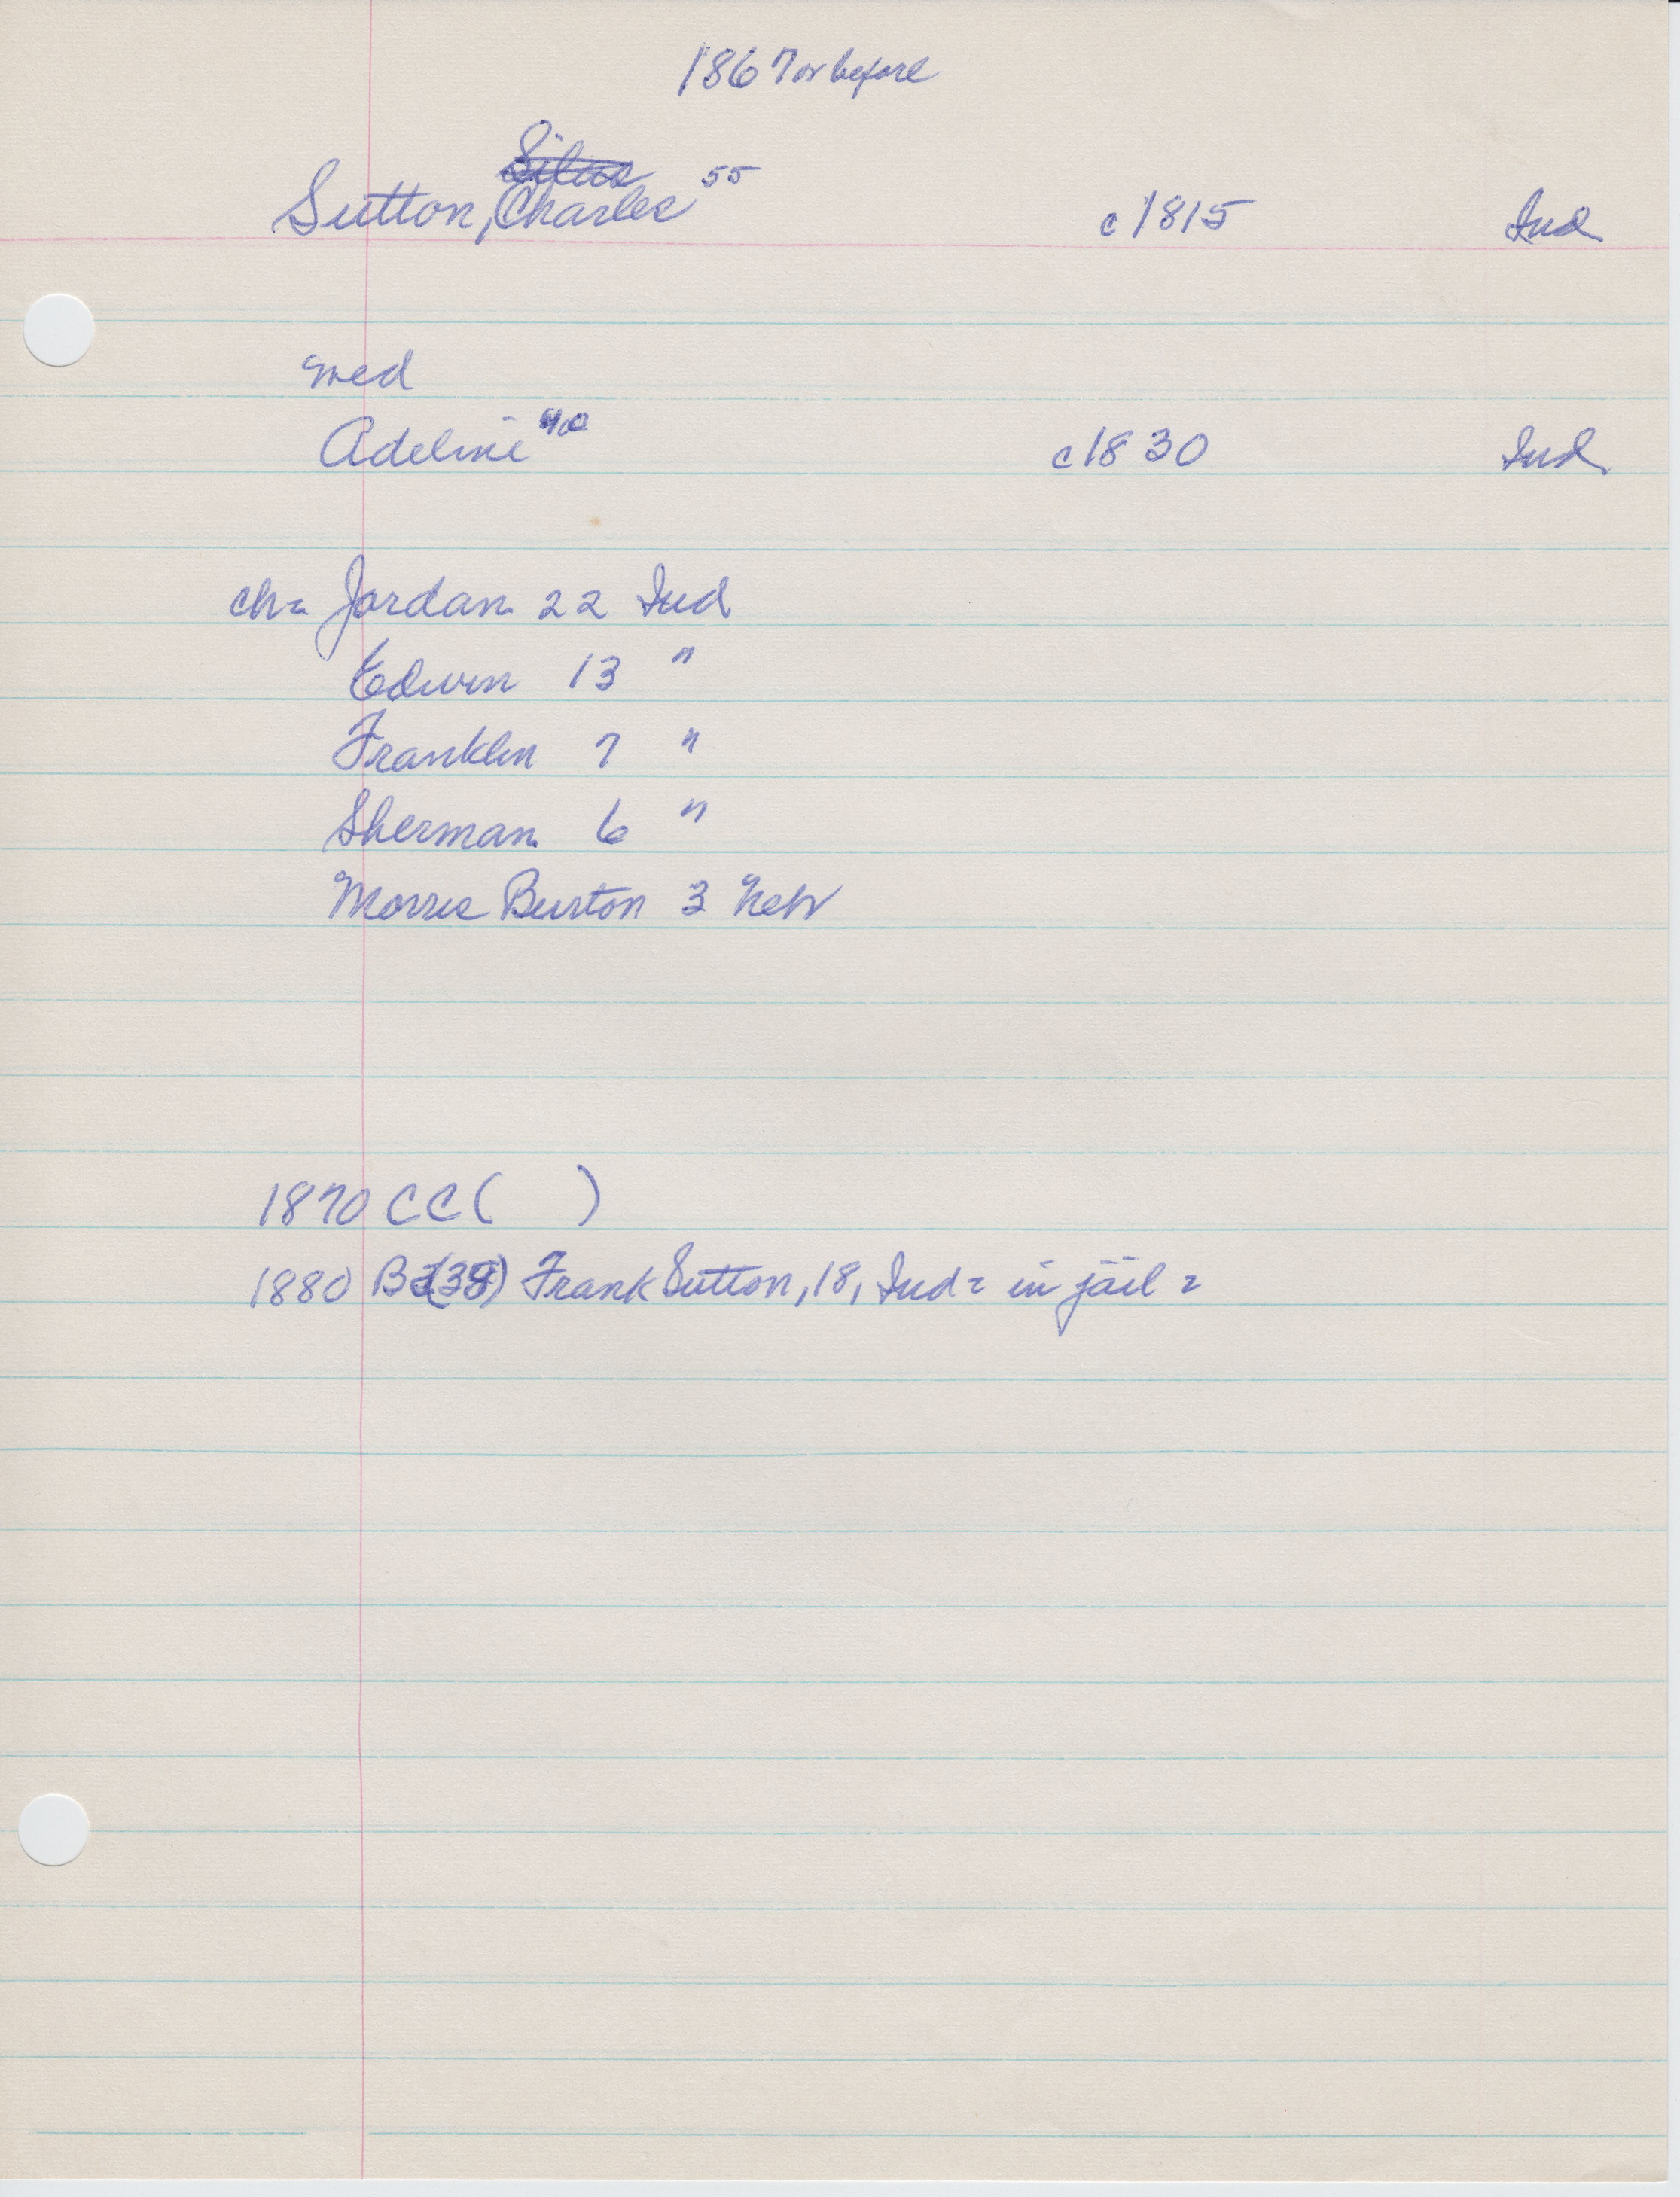 1867 or before
Silas
Sutton, Charles 55 c1815 Ind
med
Adeline 40 c1830 Ind
ch= Jordan 22 Ind
Edwin 13 "
Franklin 7 "
Sherman 6 "
Morris Burton 3 Nebr
1870 CC ( )
1880 Frank Sutton, 18, Ind = in jail =